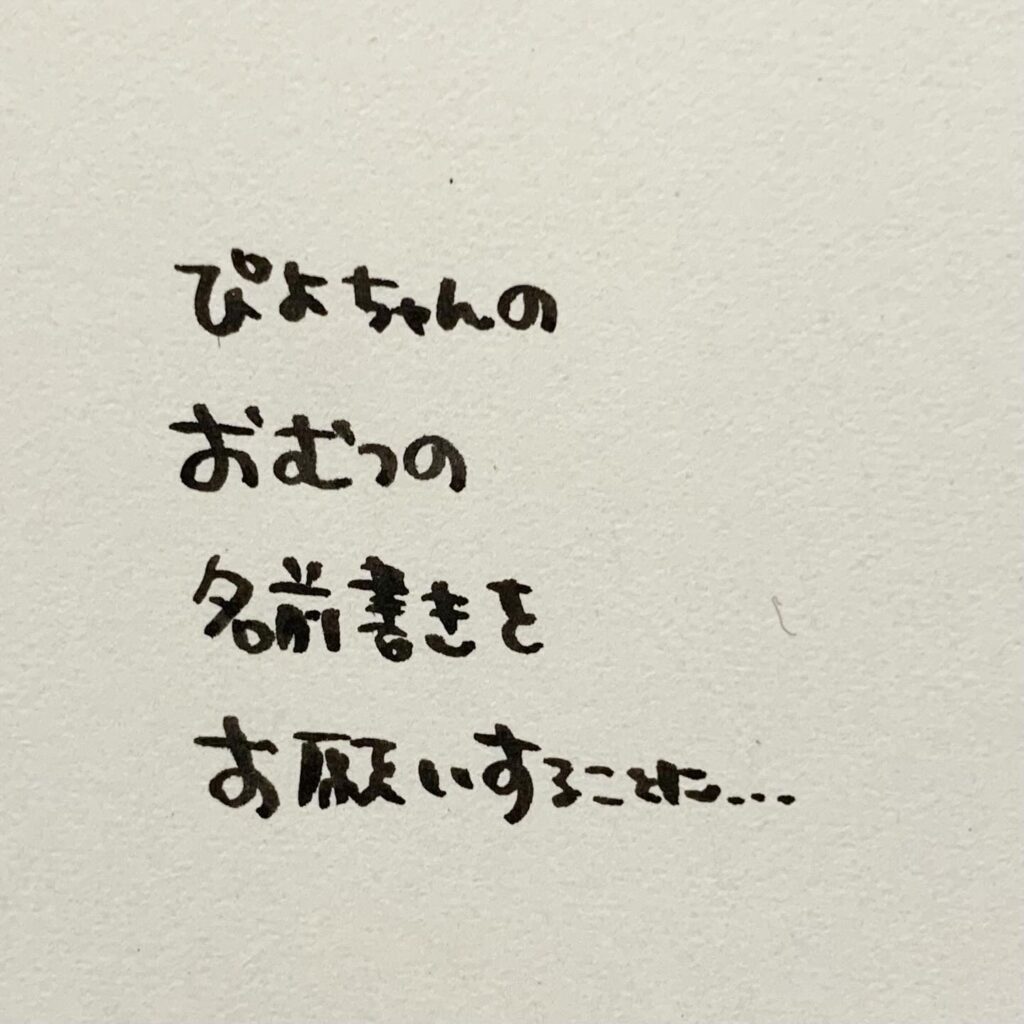 ぴよちゃんの
おむつの
名前書きを
お願いすることに...